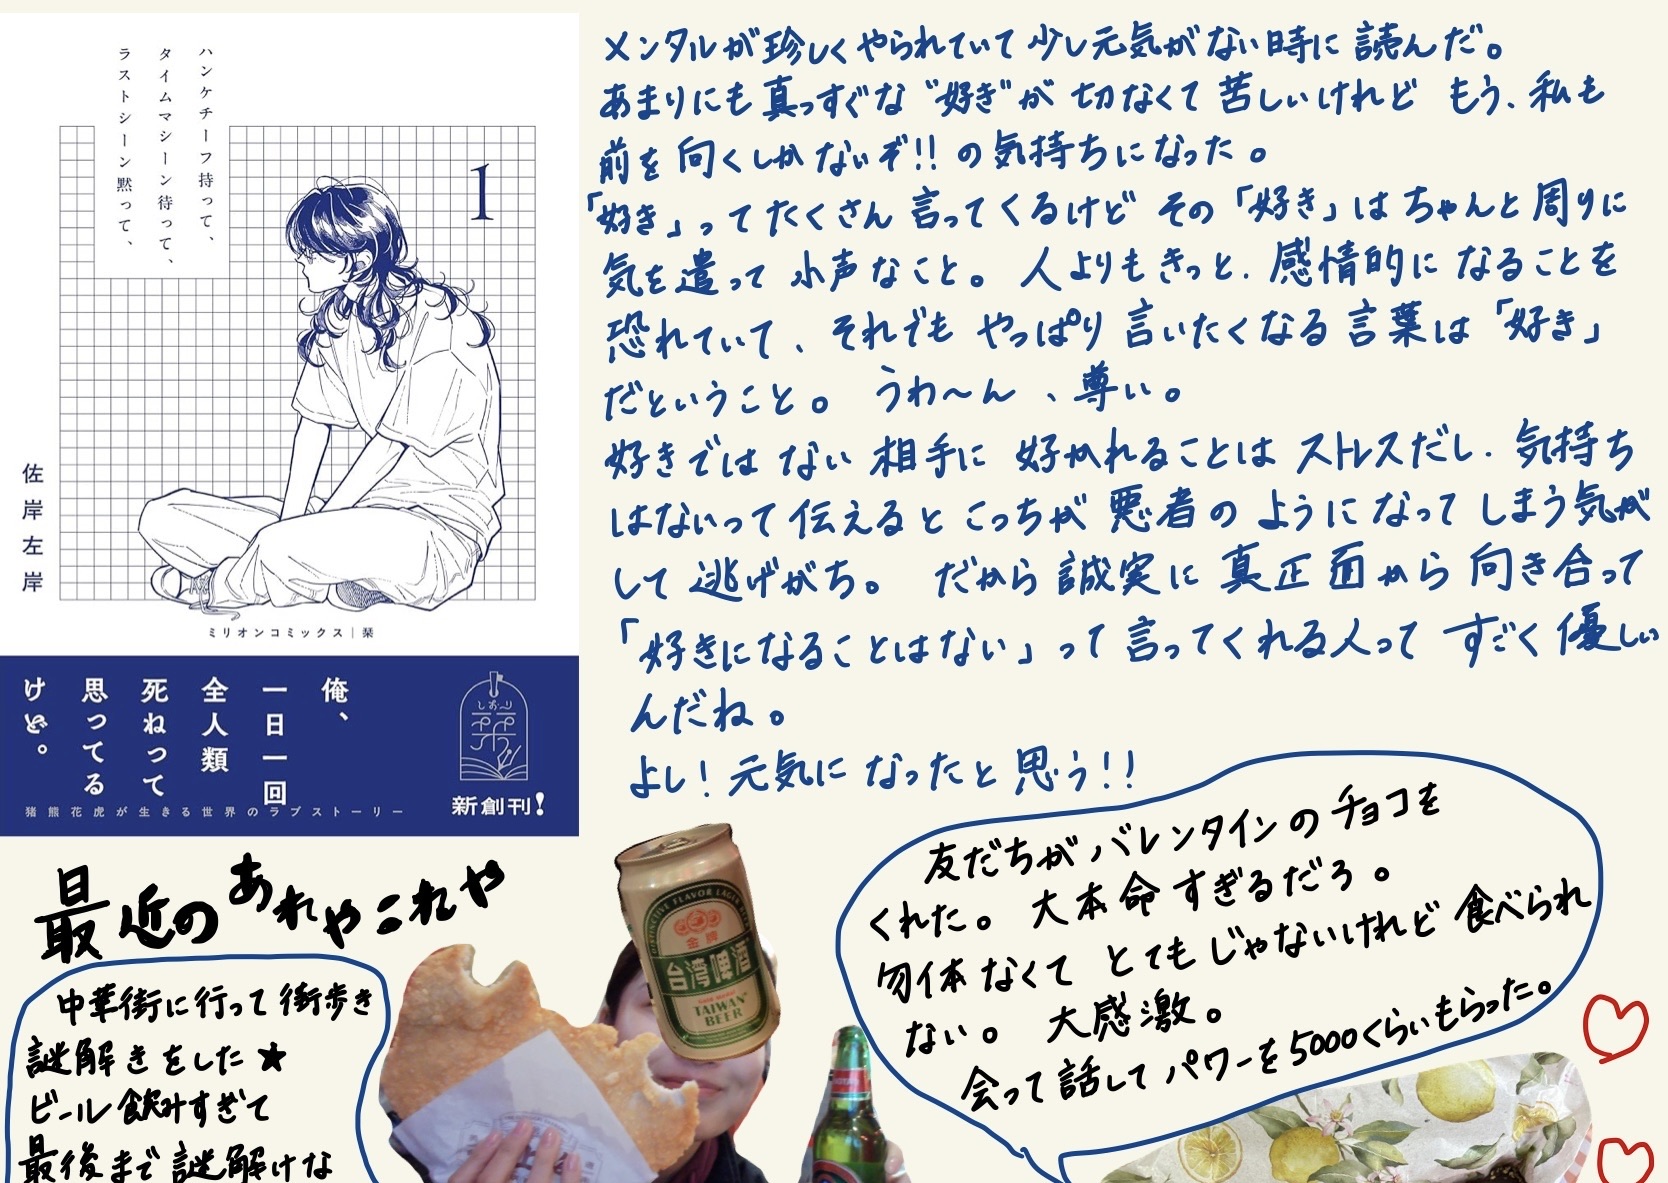 ハンケチーフ持って、
タイムマシーン待って、
ラストシーン黙って、
1
佐岸左岸
ミリオンコミックス｜栞
俺、
一日一回
全人類
死ねって
思ってる
けど。
猪熊花虎が生きる世界のラブストーリー
しおり
栞
新創刊!
メンタルが珍しくやられていて少し元気がない時に読んだ。
あまりにも真っすぐな“好き”が切なくて苦しいけれど もう、私も
前を向くしかないぞ!!の気持ちになった。
「好き」ってたくさん言ってくるけど その「好き」はちゃんと周りに
気を遣って小声なこと。人よりもきっと、感情的になることを
恐れていて、それでもやっぱり言いたくなる言葉は「好き」
だということ。うわ〜ん、尊い。
好きではない相手に好かれることはストレスだし、気持ち
はないって伝えるとこっちが悪者のようになってしまう気が
して逃げがち。だから誠実に真正面から向き合って
「好きになることはない」って言ってくれる人ってすごく優しい
んだね。
よし!元気になったと思う!!
最近のあれやこれや
中華街に行って街歩き
謎解きをした★
ビール飲みすぎて
最後まで謎解けな
DISTINCTIVE FLAVOR LAGER
金牌
台湾啤酒
TAIWAN
BEER
友だちがバレンタインのチョコを
くれた。大本命すぎるだろ。
勿体なくてとてもじゃないけれど食べられ
ない。大感激。
会って話してパワーを5000くらいもらった。